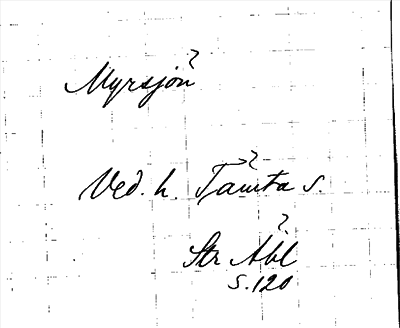 ?
Myrsjön
?
Ved. h. Tämta s.
?
Str Åbl
s. 120